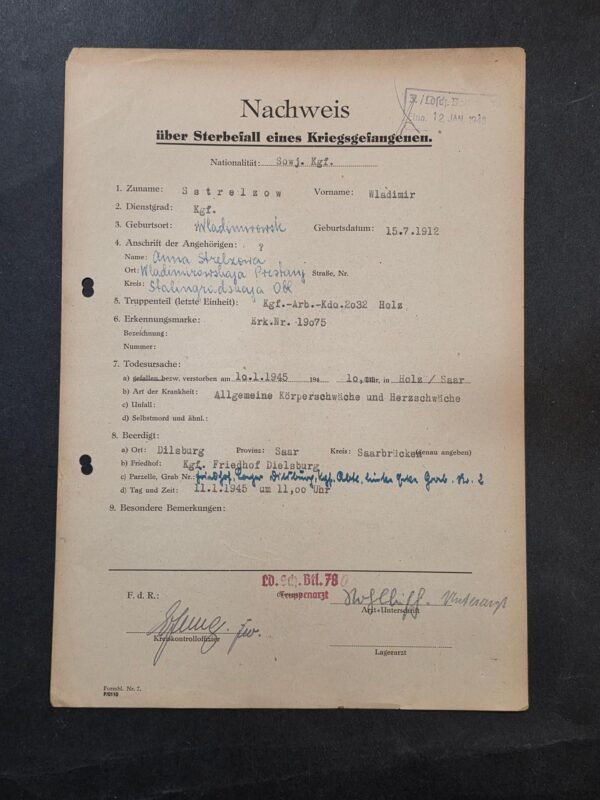 Nachweis
über Sterbefall eines Kriegsgefangenen.
12. JAN. 1945
Nationalität: Sowj. Kgf.
1. Zuname: Sstrelzow Vorname: Wladimir
2. Dienstgrad: Kgf.
3. Geburtsort: Wladimirowsk Geburtsdatum: 15.7.1912
4. Anschrift der Angehörigen: ?
Name: Anna Strelzowa
Ort: Wladimirowskaja Pristany Straße, Nr.
Kreis: Stalingradskaja Obl.
5. Truppenteil (letzte Einheit): Kgf.-Arb.-Kdo.2o32 Holz
6. Erkennungsmarke: Erk.Nr. 19o75
Bezeichnung:
Nummer:
7. Todesursache:
a) gefallen bezw. verstorben am 1o.1.1945 194 1o,oo Uhr, in Holz / Saar
b) Art der Krankheit: Allgemeine Körperschwäche und Herzschwäche
c) Unfall:
d) Selbstmord und ähnl.:
8. Beerdigt:
a) Ort: Dilsburg Provinz: Saar Kreis: Saarbrücken (genau angeben)
b) Friedhof: Kgf. Friedhof Dielsburg
c) Parzelle, Grab Nr.: Friedhof, Lager Dilsburg, Kgf. Abt. linke Ecke Grab. Nr. 2
d) Tag und Zeit: 11.1.1945 um 11,oo Uhr
9. Besondere Bemerkungen:
LD. Sch. Btl. 780
F. d. R.: Truppenarzt Unterarzt
Arzt-Unterschrift
Kreiskontrolloffizier
Lagerarzt
Formbl. Nr. 7.
P/0110